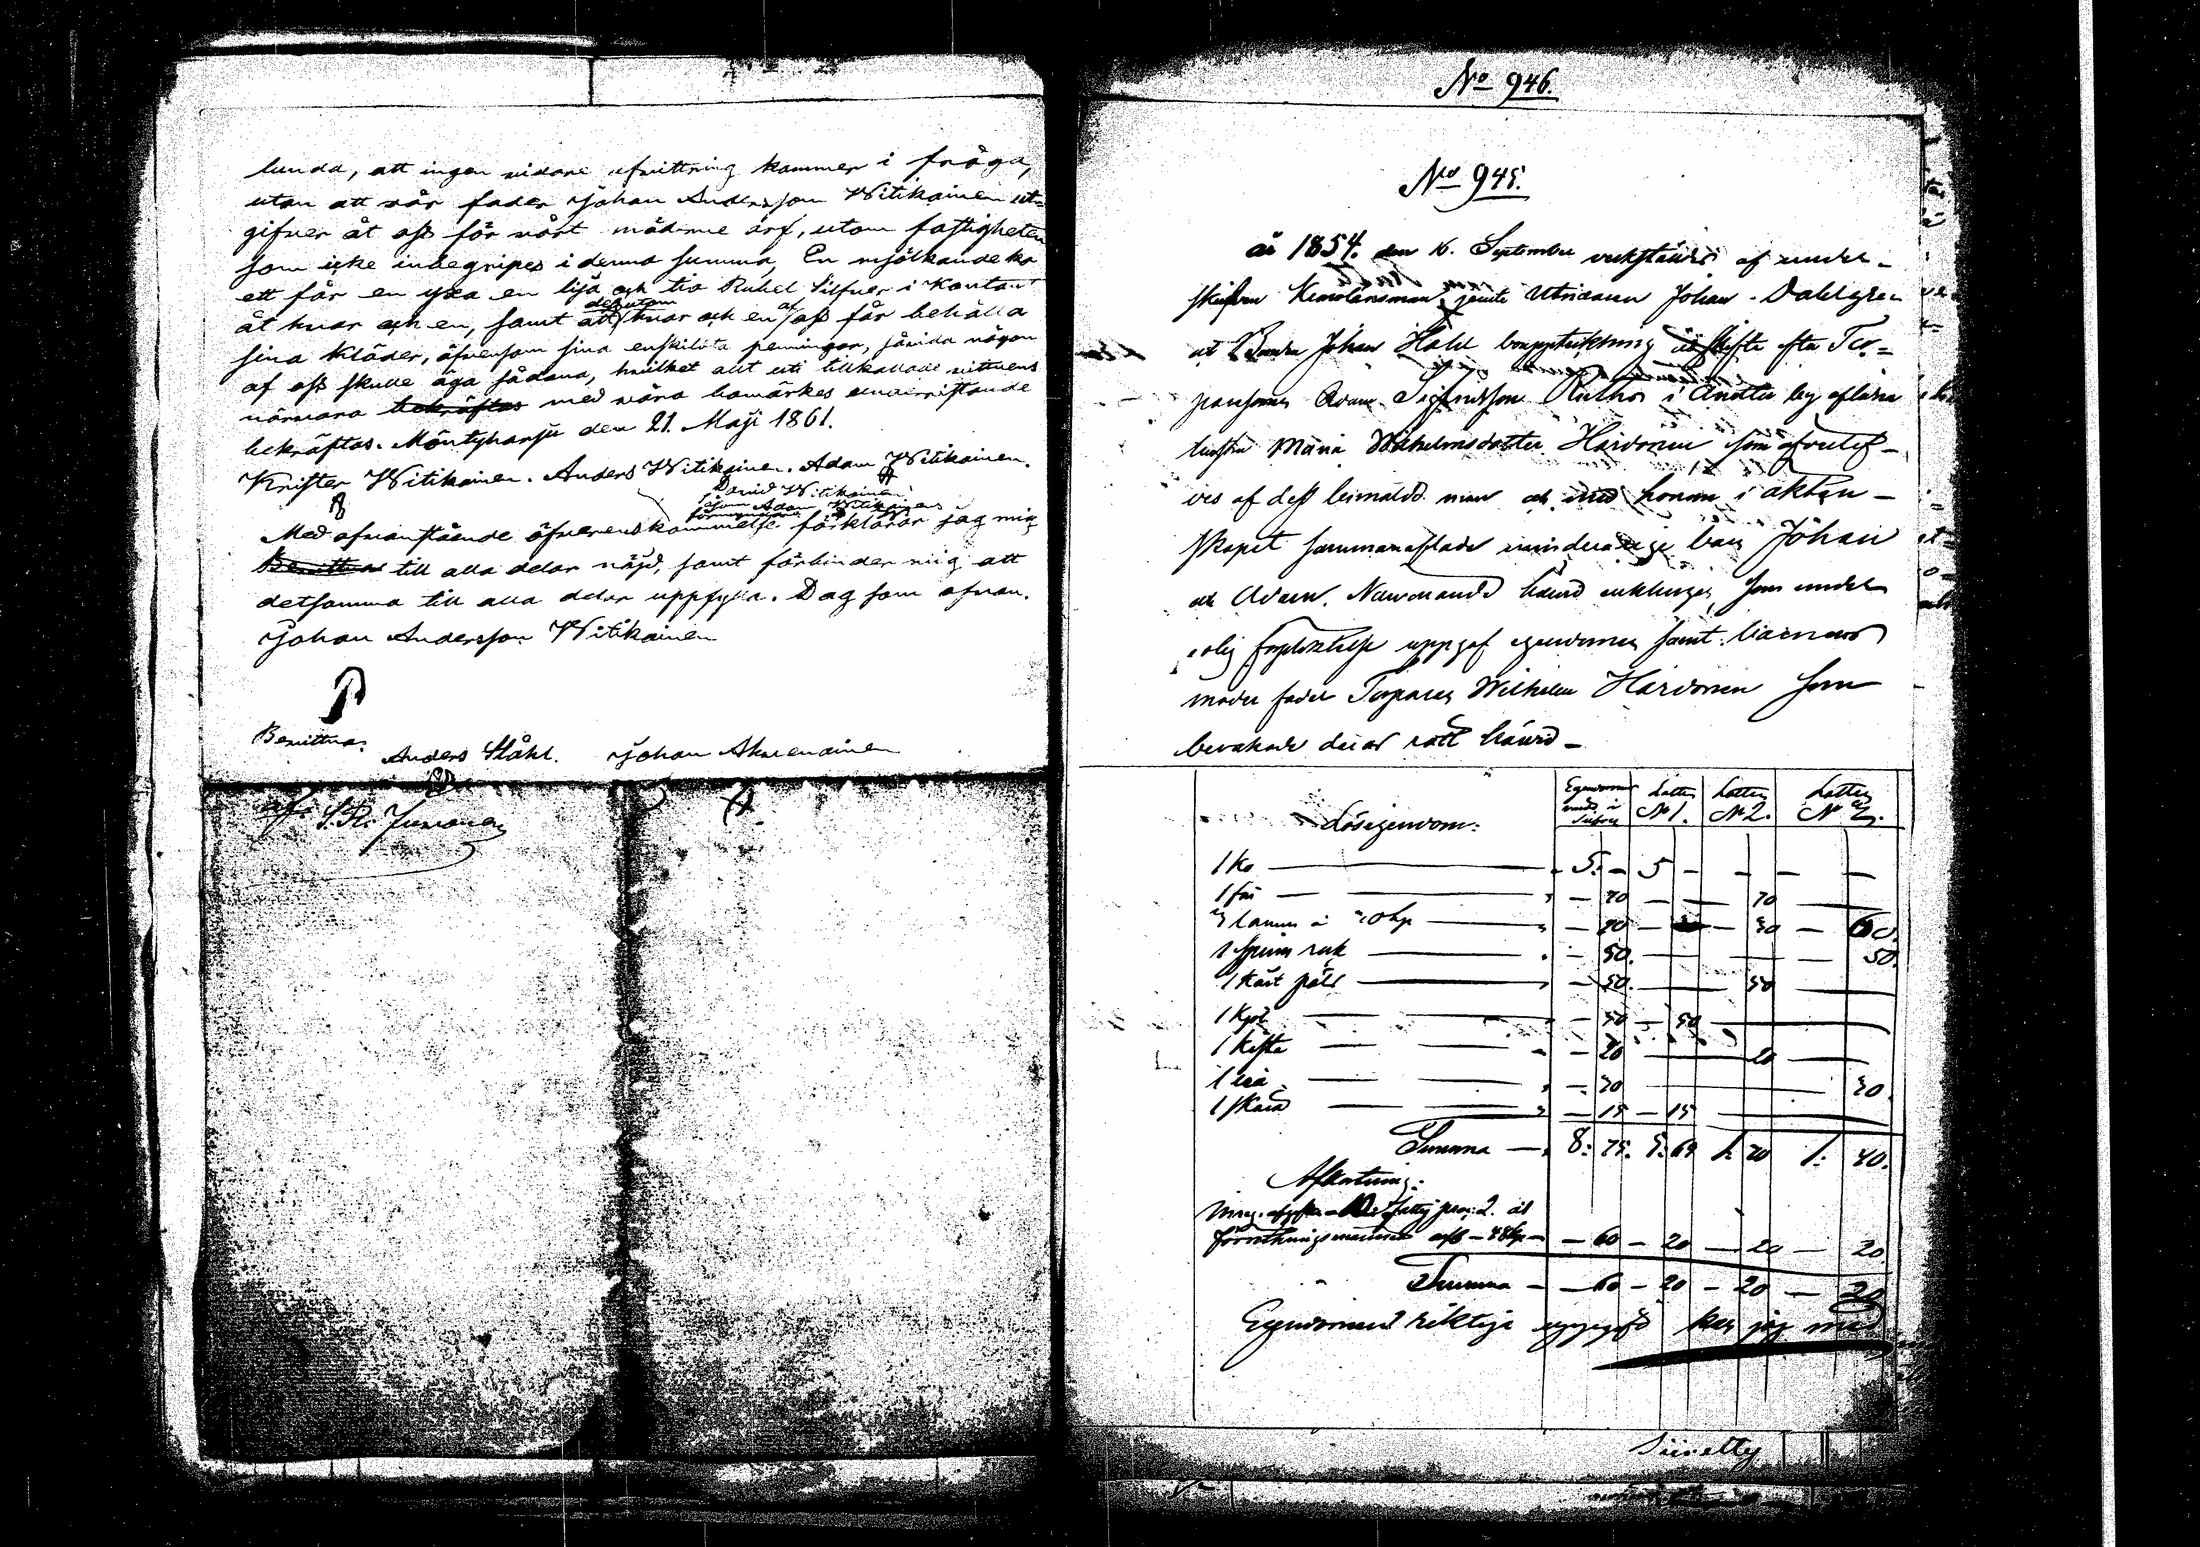 lunda, att ingen vidare afvittring kommer i fråga,
utan att vår fader Johan Andersson Witikainen ut=
gifver åt oss för vårt möderne arf, utom fastigheten
som icke inbegripes i denna summa, En mjölkande ko
ett får en yxa en lija och tio Rubel Silfver i kontant
åt hvar och en, samt att dessutom hvar och en af oss får behålla
sina kläder, äfvensom sina enskildta penningar, såvida någon
af oss skulle äga sådana, hvilket allt uti tillkallade vittnens
närvara bekräftas med våra bomärkes underristande
bekräftas. Möntyharju den 21. Maji 1861.
Krister Witikainen. Anders Witikainen. Adam Witikainen.
David Witikainen
såsom Adam Witikainens
förmyndare
Med ofvanstående öfverenskommelse förklarar jag mig
Bevittnas till alla delar nöjd, samt förbinder mig att
detsamma till alla delar uppfylla. Dag som ofvan.
Johan Andersson Witikainen
Bevittna:
Anders Ståhl. Johan Ahvenainen
af: S. R. Jusonen
No 946.
No 945.
år 1854. den 16. September verkstäldes af under-
skrifven Kronolänsman jemte Utridaren Johan Dahlgren
Johan Hold bouppteckning skifte efter Tor=
paresonen Adam Sigfridsson i Anotta by aflidna
hustru Maria Wilhelmsdotter Härdonen som efterlef-
ves af dess leimäldd man och med honom i äkten-
skapet sammanaflade minderårige barn Johan
och Adam. Närvarande härvid enklingen, som under
edlig förpliktelse uppgaf egendomen samt barnens
moder fader Torparen Wilhelm Härdonen som
bevakade deras rätt härvid-
Lösegendom:
Egendomens värde i Silfver
Lotten N 1.
Lotten N 2.
Lotten N 3.
1 Ko - 5. - 5 - - - -
1 får - 70 - 70
3 lamm à 30 kp - 90 - 30 - 60.
1 spinn rock - 50. 50.
1 kårt päls - 50. 50
1 Kjol - 50 - 50
1 Kista - 20 20
1 lia - 30 30.
1 skära - 15 - 15
Summa - 8: 75. 5: 65 1: 70 1: 40.
Afkortning:
förrättningsmannen - 48 kp - 60 - 20 - 20 - 20.
Summa - 60 - 20 - 20 - 20
Egendomen riktigt uppgifvit kan jag med
Siirretty